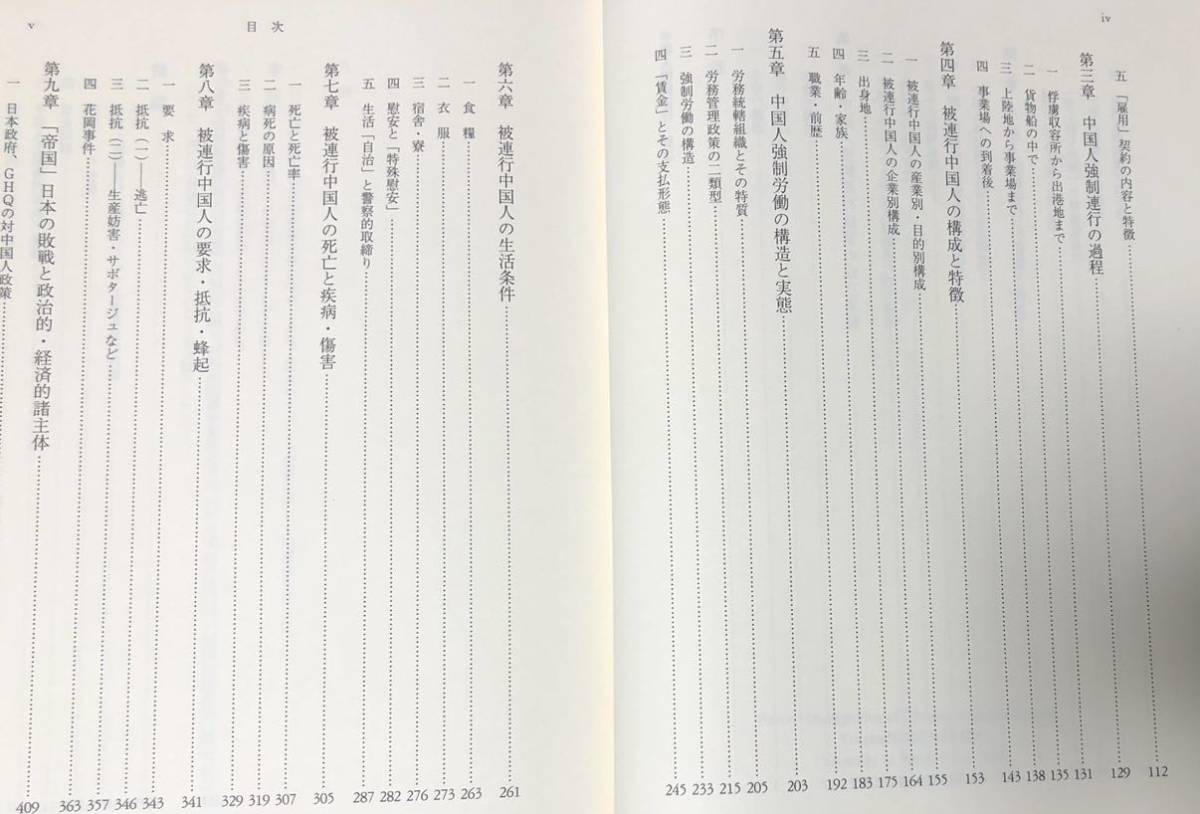 iv
五 「雇用」契約の内容と特徴 112
第三章 中国人強制連行の過程 129
一 俘虜収容所から出港地まで 131
二 貨物船の中で 135
三 上陸地から事業場まで 138
四 事業場への到着後 143
第四章 被連行中国人の構成と特徴 153
一 被連行中国人の産業別・目的別構成 155
二 被連行中国人の企業別構成 164
三 出身地 175
四 年齢・家族 183
五 職業・前歴 192
第五章 中国人強制労働の構造と実態 203
一 労務統轄組織とその特質 205
二 労務管理政策の二類型 215
三 強制労働の構造 233
四 「賃金」とその支払形態 245
目次
v
第六章 被連行中国人の生活条件 261
一 食糧 263
二 衣服 273
三 宿舎・寮 276
四 慰安と「特殊慰安」 282
五 生活「自治」と警察的取締り 287
第七章 被連行中国人の死亡と疾病・傷害 305
一 死亡と死亡率 307
二 病死の原因 319
三 疾病と傷害 329
第八章 被連行中国人の要求・抵抗・蜂起 341
一 要求 343
二 抵抗(一)——逃亡 346
三 抵抗(二)——生産妨害・サボタージュなど 357
四 花岡事件 363
第九章 「帝国」日本の敗戦と政治的・経済的諸主体 409
一 日本政府、GHQの対中国人政策